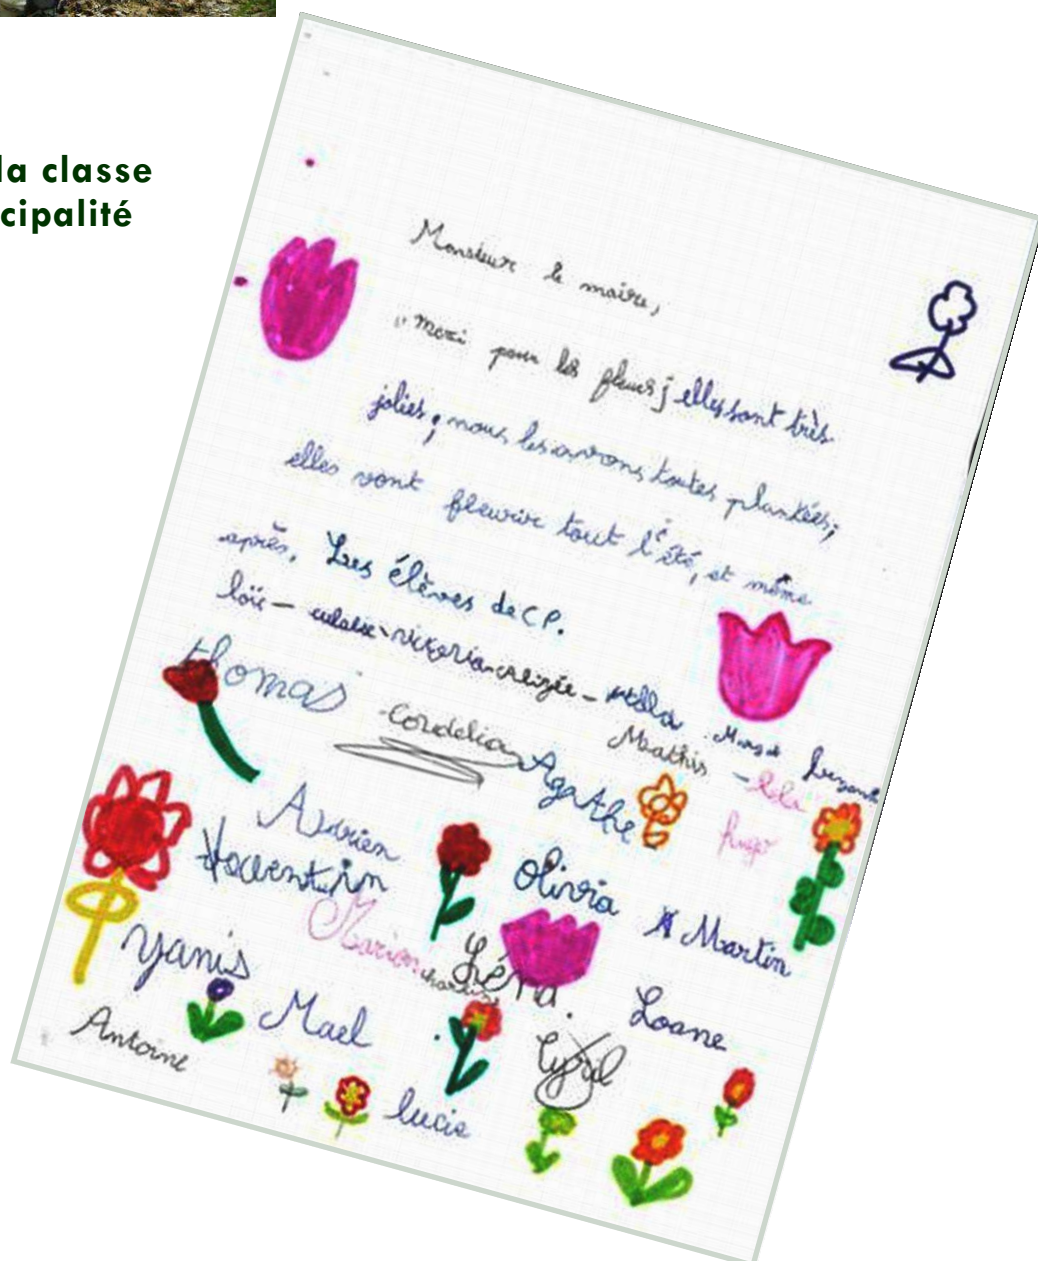 la classe
cipalité
Monsieur le maire,
"merci pour les fleurs; elles sont très
jolies; nous les avons toutes plantées;
elles vont fleurir tout l'été, et même
après. Les élèves de CP.
loïc - eulalie - victoria - alizée -
thomas
- Cordelia Mathis
Agathe - lola
Adrien hugo
Olivia Martin
Marion
yanis Léna.
Mael Loane
Antoine Cyril
lucie